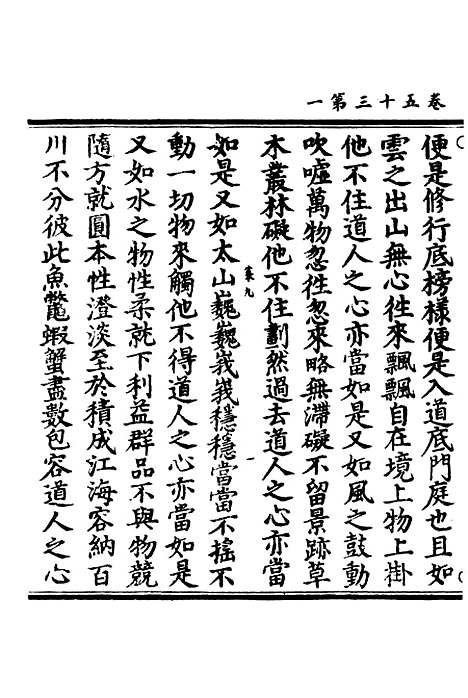 卷五十三第一
便是修行底榜樣便是入道底門庭也且如
雲之出山無心徃來飄飄自在境上物上掛
他不住道人之心亦當如是又如風之鼓動
吹噓萬物忽徃忽來略無滯礙不留景跡草
木叢林礙他不住劃然過去道人之心亦當
如是又如太山巍巍峩峩穩穩當當不搖不
動一切物來觸他不得道人之心亦當如是
又如水之物性柔就下利益群品不與物競
隨方就圓本性澄淡至於積成江海容納百
川不分彼此魚鼈蝦蟹盡數包容道人之心